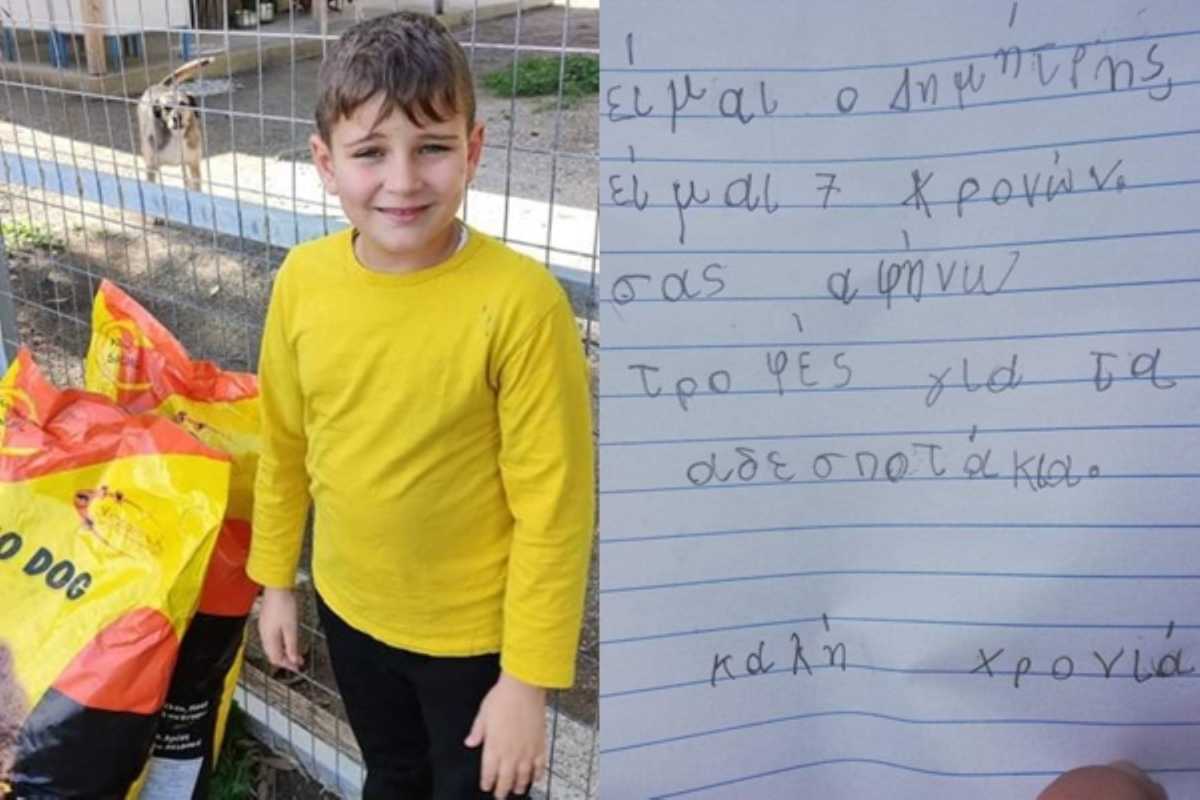 O DOG
είμαι ο Δημήτρης
είμαι 7 χρονών.
σας αφήνω
τροφές για τα
αδεσποτάκια.
καλή χρονιά